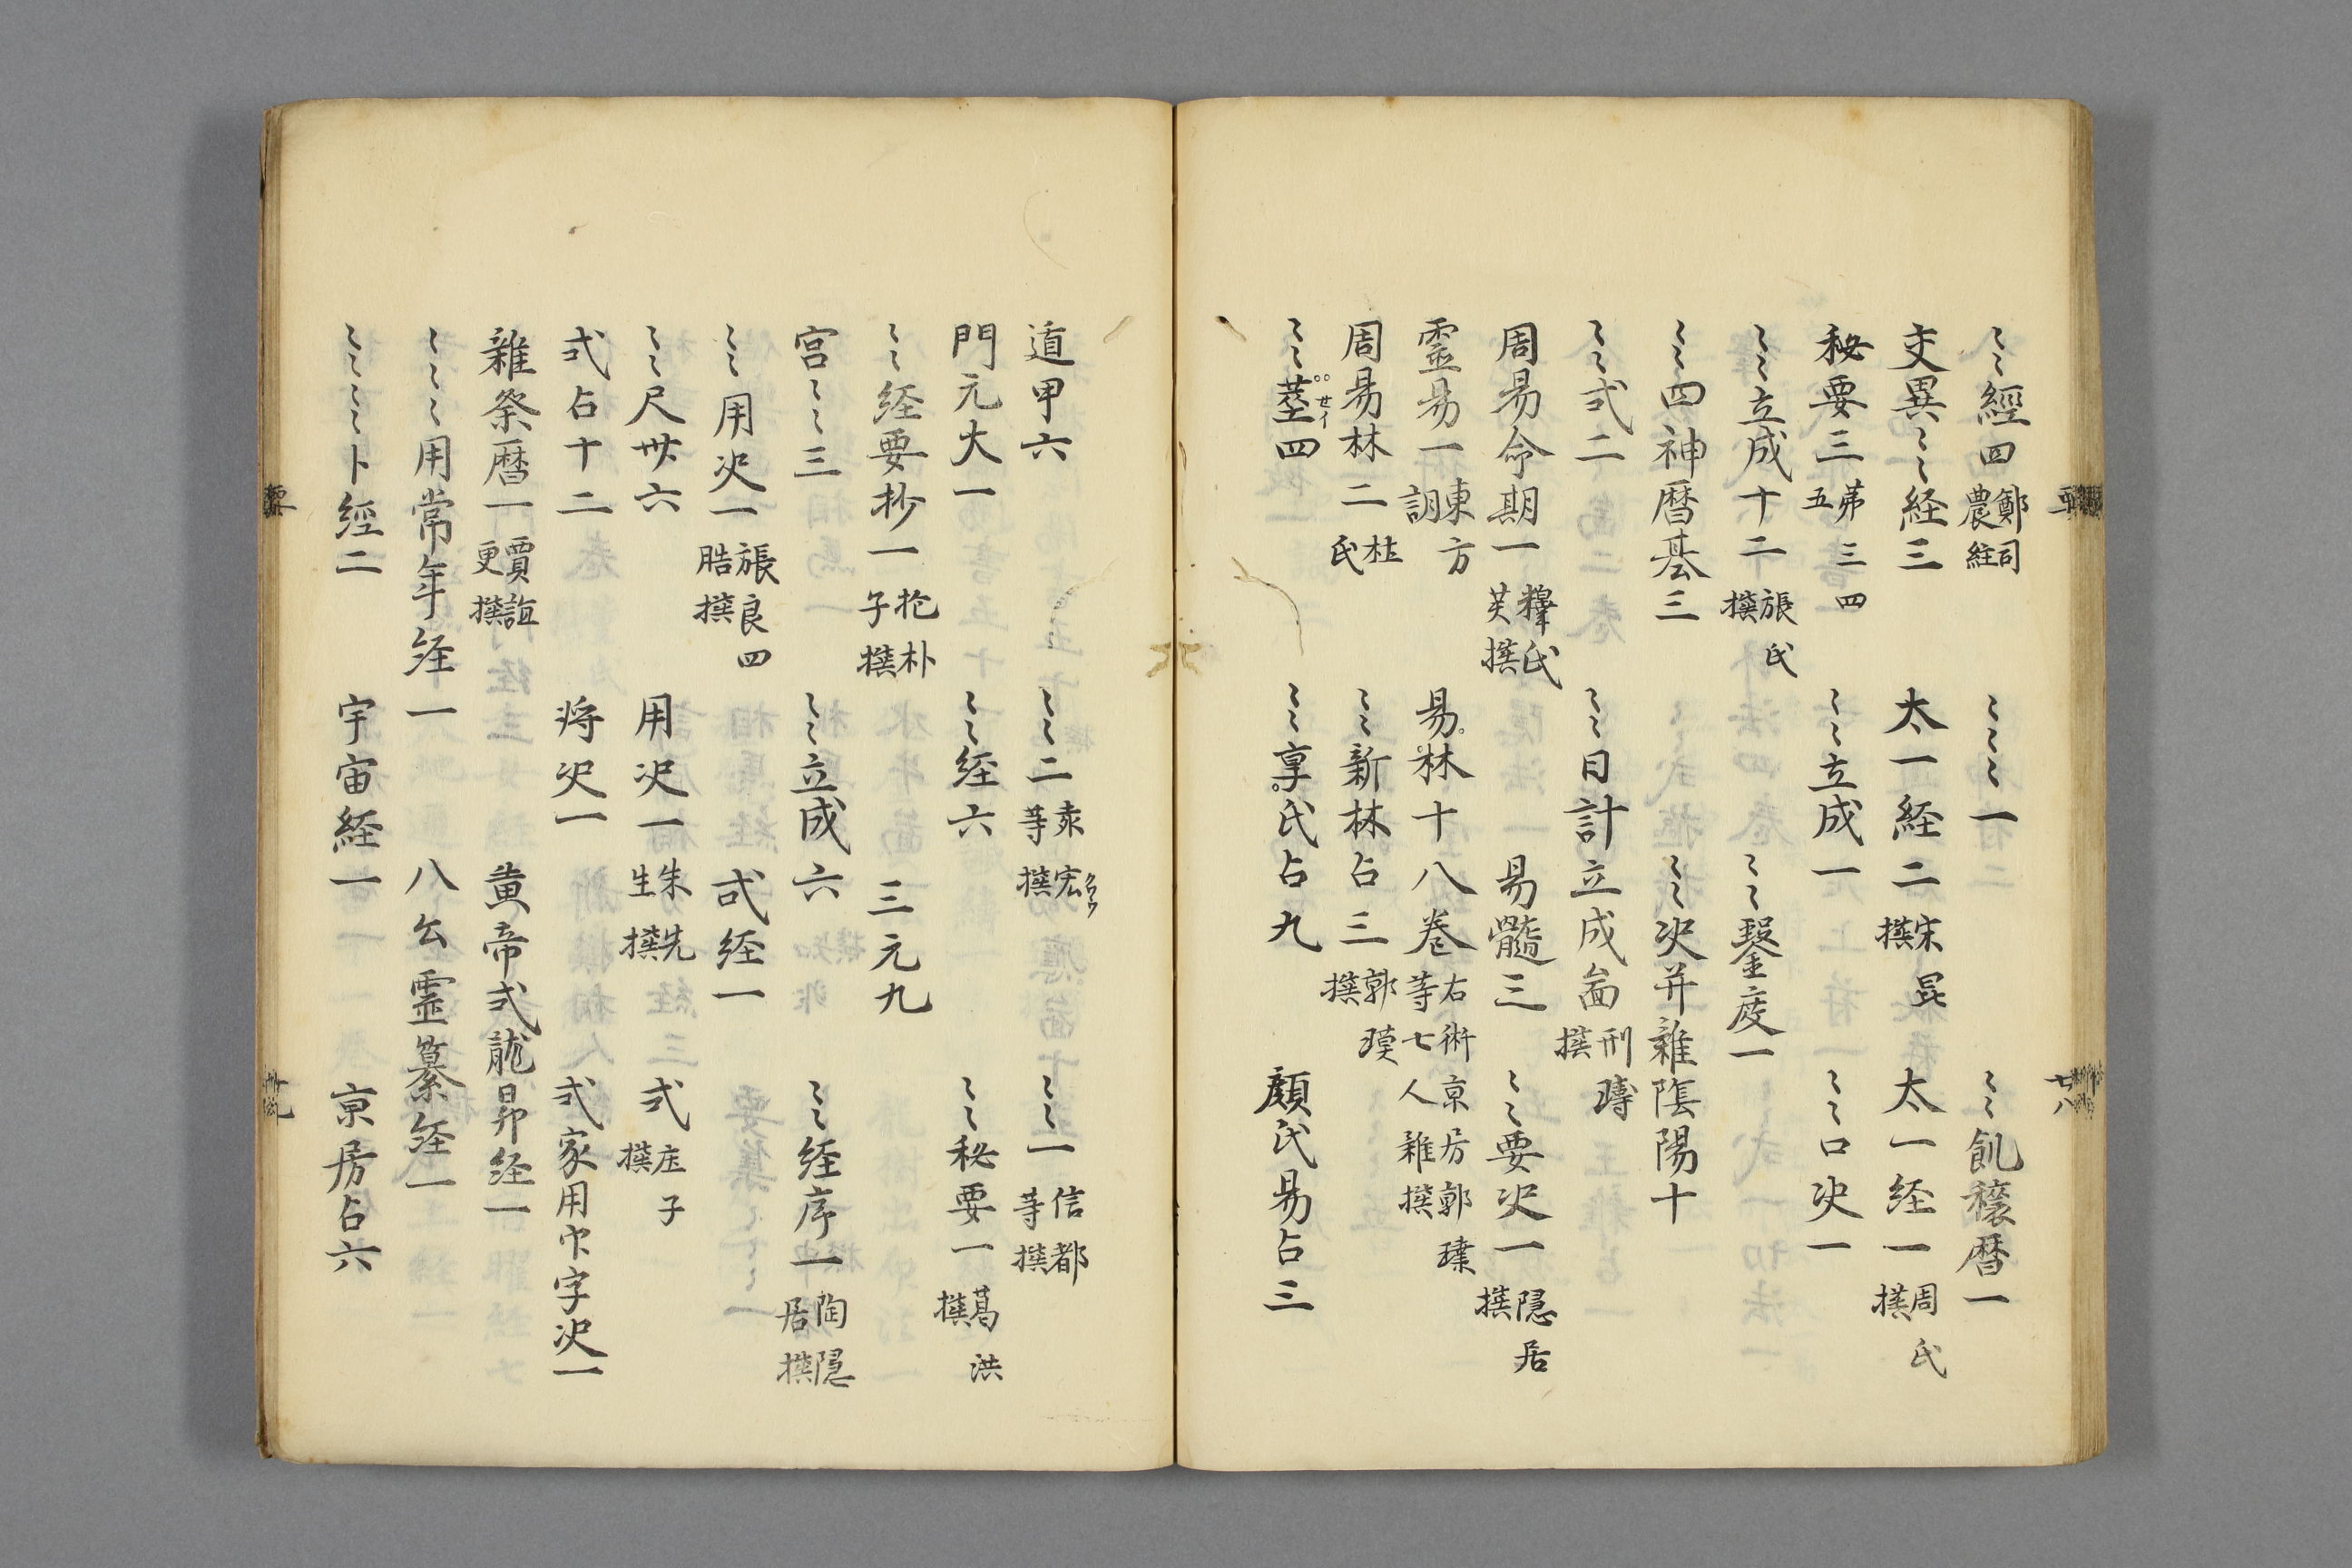 〻〻經四 鄭司農註 〻〻〻一 〻〻飢穣暦一
支異〻〻経三 太一経二 宋昆撰 太一経一 周氏撰
秘要三 苐三四五 〻〻立成一 〻〻口决一
〻〻立成十二 張氏撰 〻〻鑿度一
〻〻四神暦基三 〻〻决并雜陰陽十
〻〻式二 〻〻日計立成啚 刑璹撰
周易命期一 氏撰 易髓三 〻〻要决一 隠居撰
霊易一 東方訓 易林十八巻 右術京房郭璞等七人雜撰
周易林二 杜氏 〻〻新林占三 郭璞撰
〻〻莖四 〻〻享氏占九 顔氏易占三
遁甲六 〻〻二 宏等撰 〻〻一 信都等撰
門元大一 〻〻経六 〻〻秘要一 葛洪撰
〻〻経要抄一 抱朴子撰 三元九
宮〻〻三 〻〻立成六 〻〻経序一 陶隠居撰
〻〻用决一 張良四皓撰 式経一
〻〻尺卅六 用决一 朱先生撰 式 庄子撰
式占十二 将决一 式家用字决一
雜祭暦一 賈誼更撰 黄帝式龍昴経一
〻〻〻用常年経一 八公霊纂経一
〻〻〻〻卜經二 宇宙経一 京房占六